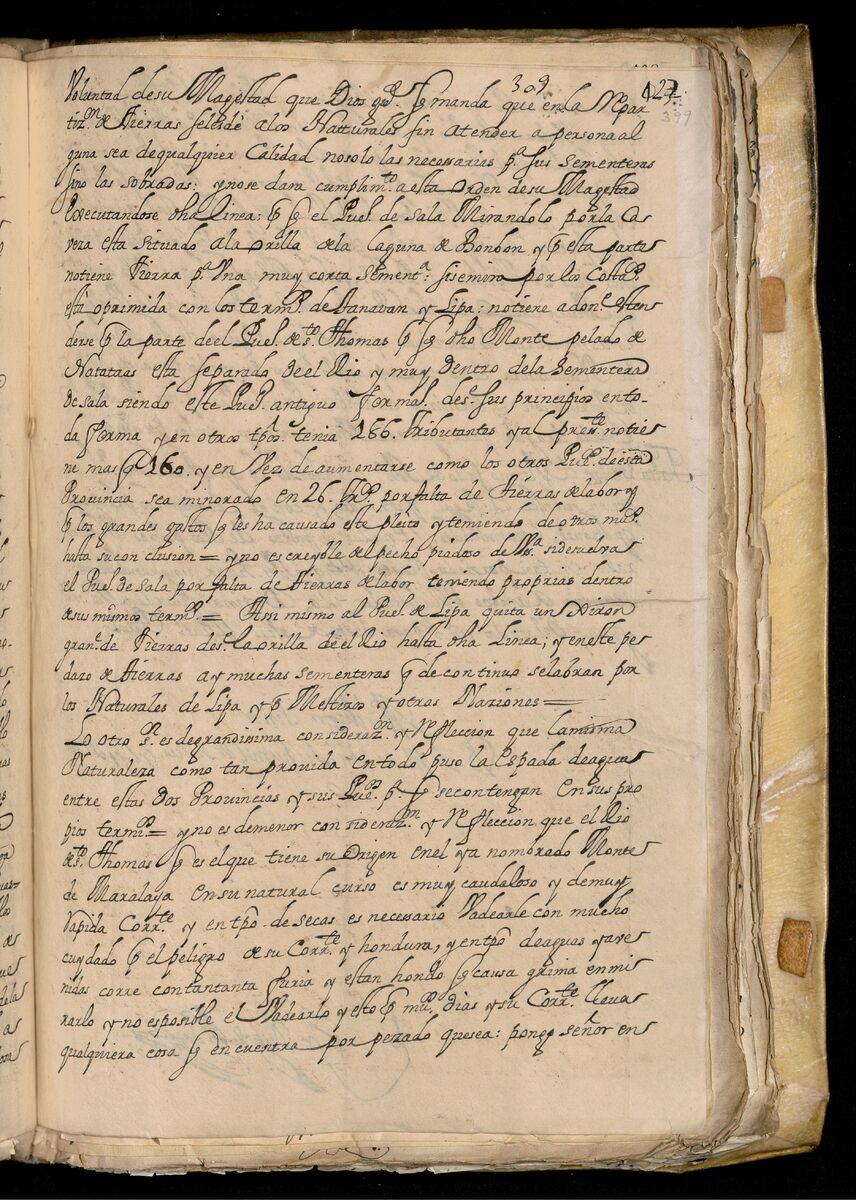 309
427
399
Voluntad desu Magestad que Dios gde. q manda que en la Repar
tizn. de tierras seledè alos Natturales sin atender a persona al
guna sea dequalquier Calidad nosolo las necessarias pa. sus sementeras
sino las sobradas; y nose dara cumplimto. a esta orden desu Magestad
Executandose dha Linea: pr q el Puelo. de sala Mirandolo por la Ca
veza esta situado ala orilla dela laguna de Bonbon y pr esta parte
notiene tierra pa. Una muy corta sementa: sisemira por los Costas.
està oprimida con los termos. de tanavan y Lipa: notiene adone. esten
derse pr la parte deel Puelo. de sto. Thomas pr q dho Monte pelado de
Natataas esta separado deel Rio y muy dentro dela sementera
de sala siendo este Puelo. antiguo formal. desde. sus principios en to-
da forma y en otros tpos. tenia 186. tributantes y al presente. notie
ne mas q 160. y en vez de aumentarse como los otros Puelos. de esta
Provincia sea minorado en 26. tribs. por falta de tierras de labor y
pr los grandes gastos q les ha causado este pleito y temiendo de otros muos.
hasta su con clusion = y no es creyble del pecho piadoso de Va. sa. sidestruira
el Puelo. de sala por falta de tierras de labor teniendo proprias dentro
de sus mismos termos. = Assi mismo al Puelo. de Lipa quita un Xiron
grane. de tierras desde. la orilla de el Rio hasta dha Linea; y eneste pe
dazo de tierras ay muchas sementeras q de continuo selabran por
los Naturales de Lipa y pr Mestizos y otras Naziones =
Lo otro sr. es degrandissima considerazn. y Refleccion que la misma
Naturaleza como tan provida en todo puso la espada de aguas
entre estas dos Provincias y sus Puelos. pa. q secontengan en sus pro
pios termos. = y no es demenor considerazn. y Refleccion que el Rio
de sto. Thomas q es el que tiene su origen en el ya nombrado Monte
de Maralaya en su natural curso es muy caudaloso y demuy
rapida Corrte. y en tpo. de secas es necessario Vadearle con mucho
cuydado pr el peligro de su Corrte. y hondura, y en tpo de aguas y ave
nidas corre contantanta furia y estan hondo q causa grima en mi
rarlo y no es posible el Vadearlo y esto pr muos. dias y su Corrte. lleva
qualquiera cosa q en cuentra por pezado quesea: pongo señor en